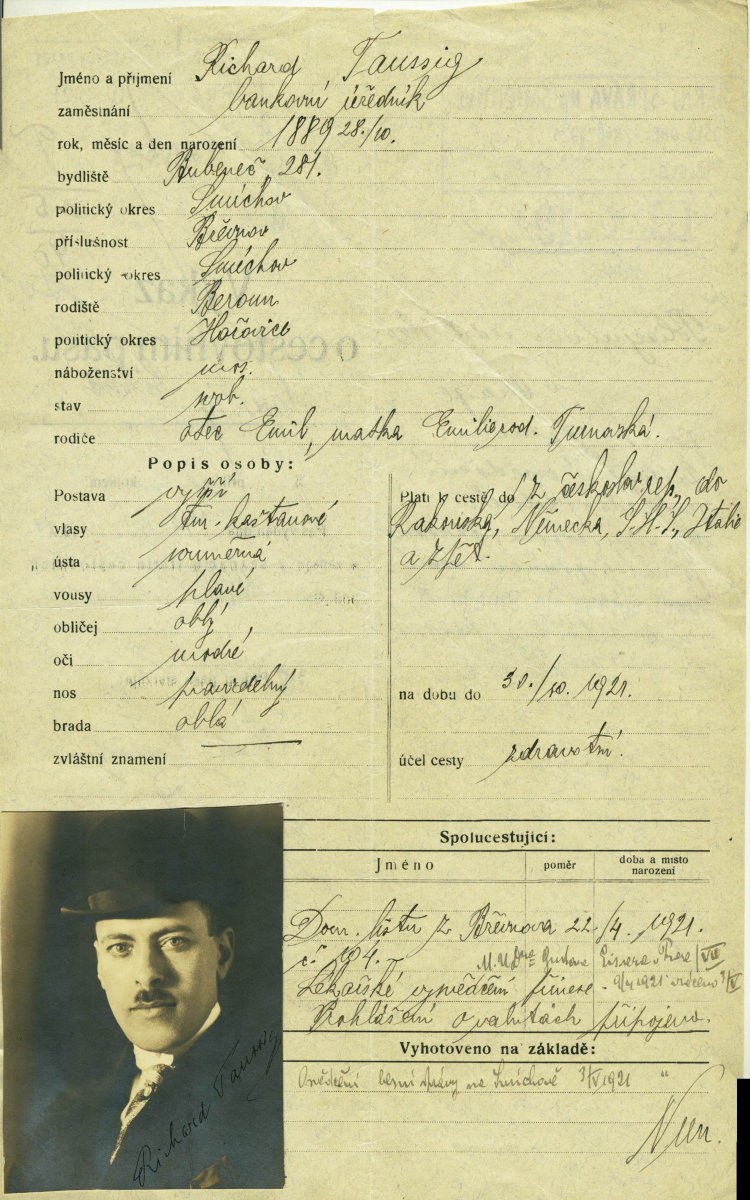 Jméno a příjmení Richard Taussig
zaměstnání bankovní úředník
rok, měsíc a den narození 1889 28./10.
bydliště Bubeneč 281.
politický okres Smíchov
příslušnost Břevnov
politický okres Smíchov
rodiště Beroun
politický okres Hořovice
náboženství mos.
stav svob.
rodiče otec Emil, matka Emilie rod. Turnovská.
Popis osoby:
Postava vyšší
vlasy tm. kaštanové
ústa souměrná
vousy plavé
obličej oblý
oči modré
nos pravidelný
brada oblá
zvláštní znamení
Platí k cestě do z českoslov. rep. do
Rakouska, Německa, S.H.S., Italie
a zpět.
na dobu do 30./10. 1921.
účel cesty zdravotní.
Spolucestující:
Jméno poměr doba a místo narození
Dom. listu z Břevnova 22./4. 1921.
č. 104. M.U.Dra Gustava
Lékařské vysvědčení 9/4 1921
Prohlášení o valutách připojeno.
Vyhotoveno na základě:
Osvědčení berní správy na Smíchově 3/V 1921
Richard Taussig